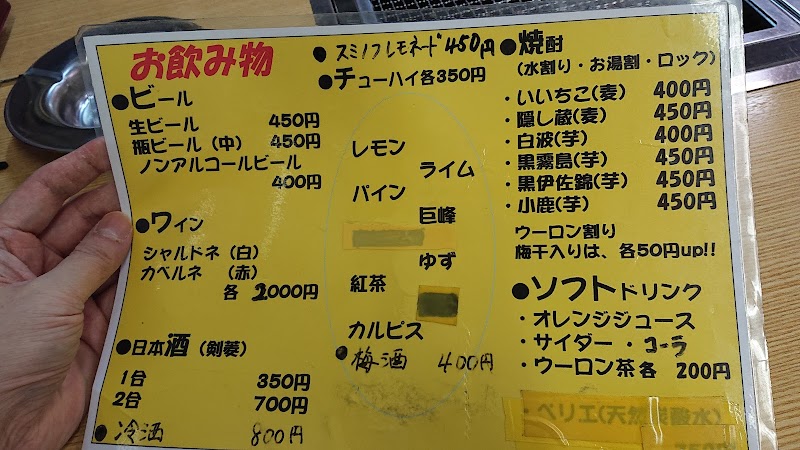 お飲み物
●ビール
生ビール 450円
瓶ビール（中） 450円
ノンアルコールビール
400円
●ワイン
シャルドネ（白）
カベルネ （赤）
各 2000円
●日本酒（剣菱）
1合 350円
2合 700円
●冷酒 800円
●スミノフレモネード 450円
●チューハイ各350円
レモン
ライム
パイン
巨峰
ゆず
紅茶
カルピス
●梅酒 400円
●焼酎
（水割り・お湯割・ロック）
・いいちこ(麦) 400円
・隠し蔵(麦) 450円
・白波(芋) 400円
・黒霧島(芋) 450円
・黒伊佐錦(芋) 450円
・小鹿(芋) 450円
ウーロン割り
梅干入りは、各50円up!!
●ソフトドリンク
・オレンジジュース
・サイダー ・コーラ
・ウーロン茶 各 200円
・ペリエ(天然炭酸水)